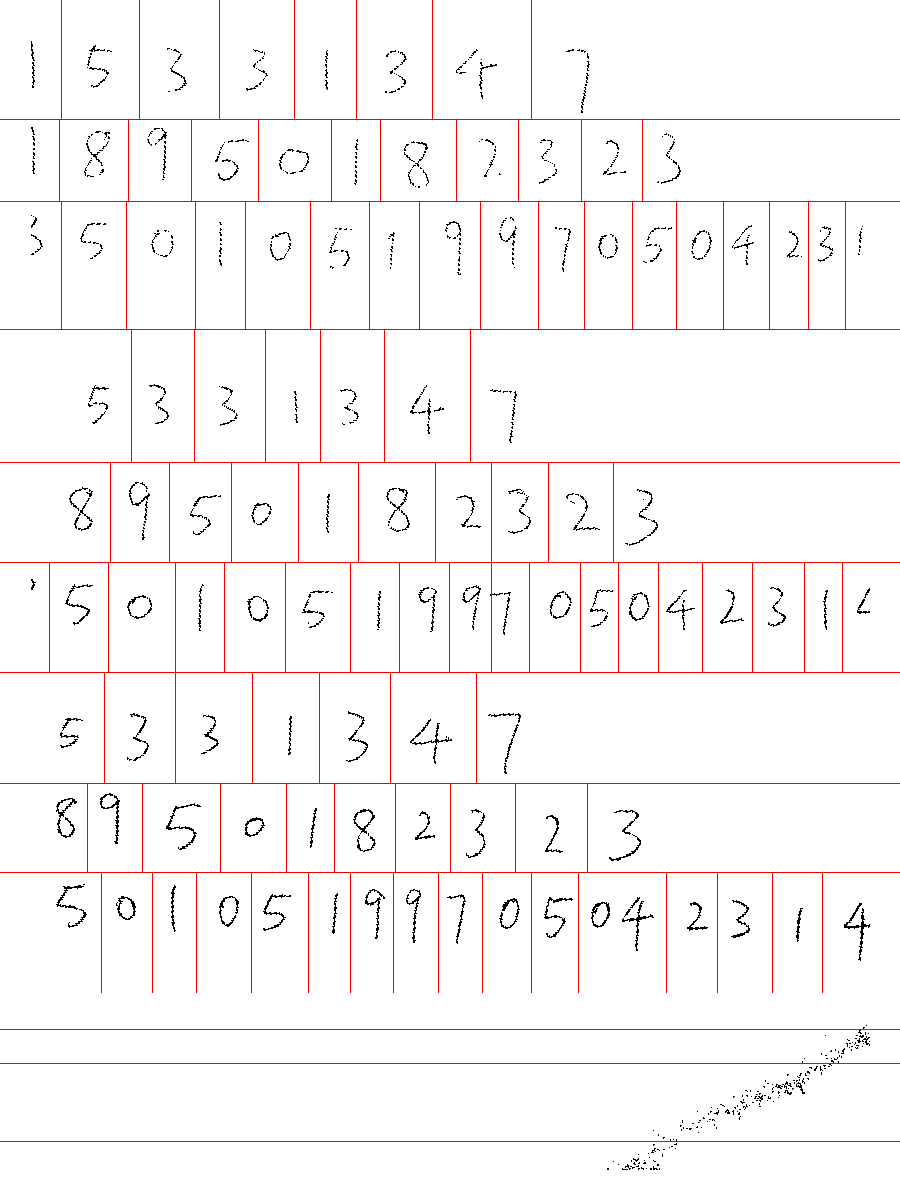 1 5 3 3 1 3 4 7
1 8 9 5 0 1 8 2 3 2 3
3 5 0 1 0 5 1 9 9 7 0 5 0 4 2 3 1
5 3 3 1 3 4 7
8 9 5 0 1 8 2 3 2 3
5 0 1 0 5 1 9 9 7 0 5 0 4 2 3 1
5 3 3 1 3 4 7
8 9 5 0 1 8 2 3 2 3
5 0 1 0 5 1 9 9 7 0 5 0 4 2 3 1 4